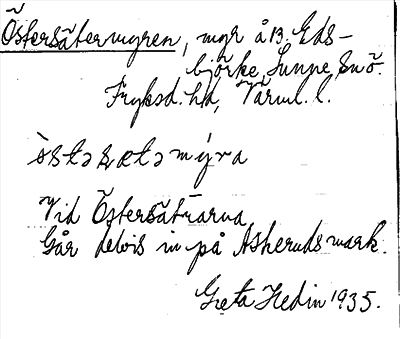 Östersätermyren, myr å 13. Eds-
björke, Sunne sn ö.
Fryksd. hd, Värml. l.
östəsætəmýra
Vid Östersätrarna
Går delvis in på Askeruds mark.
Greta Hedin 1935.